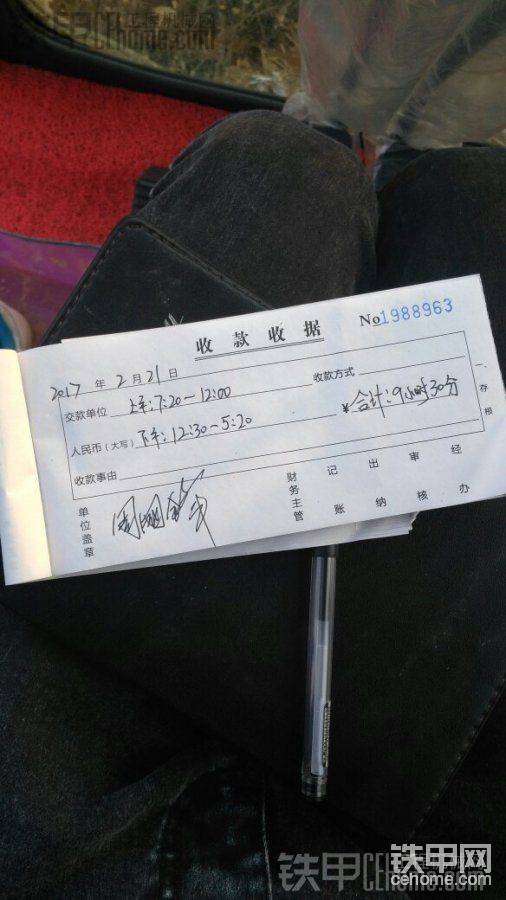 铁甲CE工程机械网
收款收据 No1988963
2017 年 2 月 21 日
交款单位 上午:7:20-12:00 收款方式
人民币(大写) 下午:12:30-5:20 ¥ 合计:9小时30分
收款事由
一 存根
单位盖章
财务主管 记账 出纳 审核 经办
铁甲网
cehome.com
铁甲CEHOME